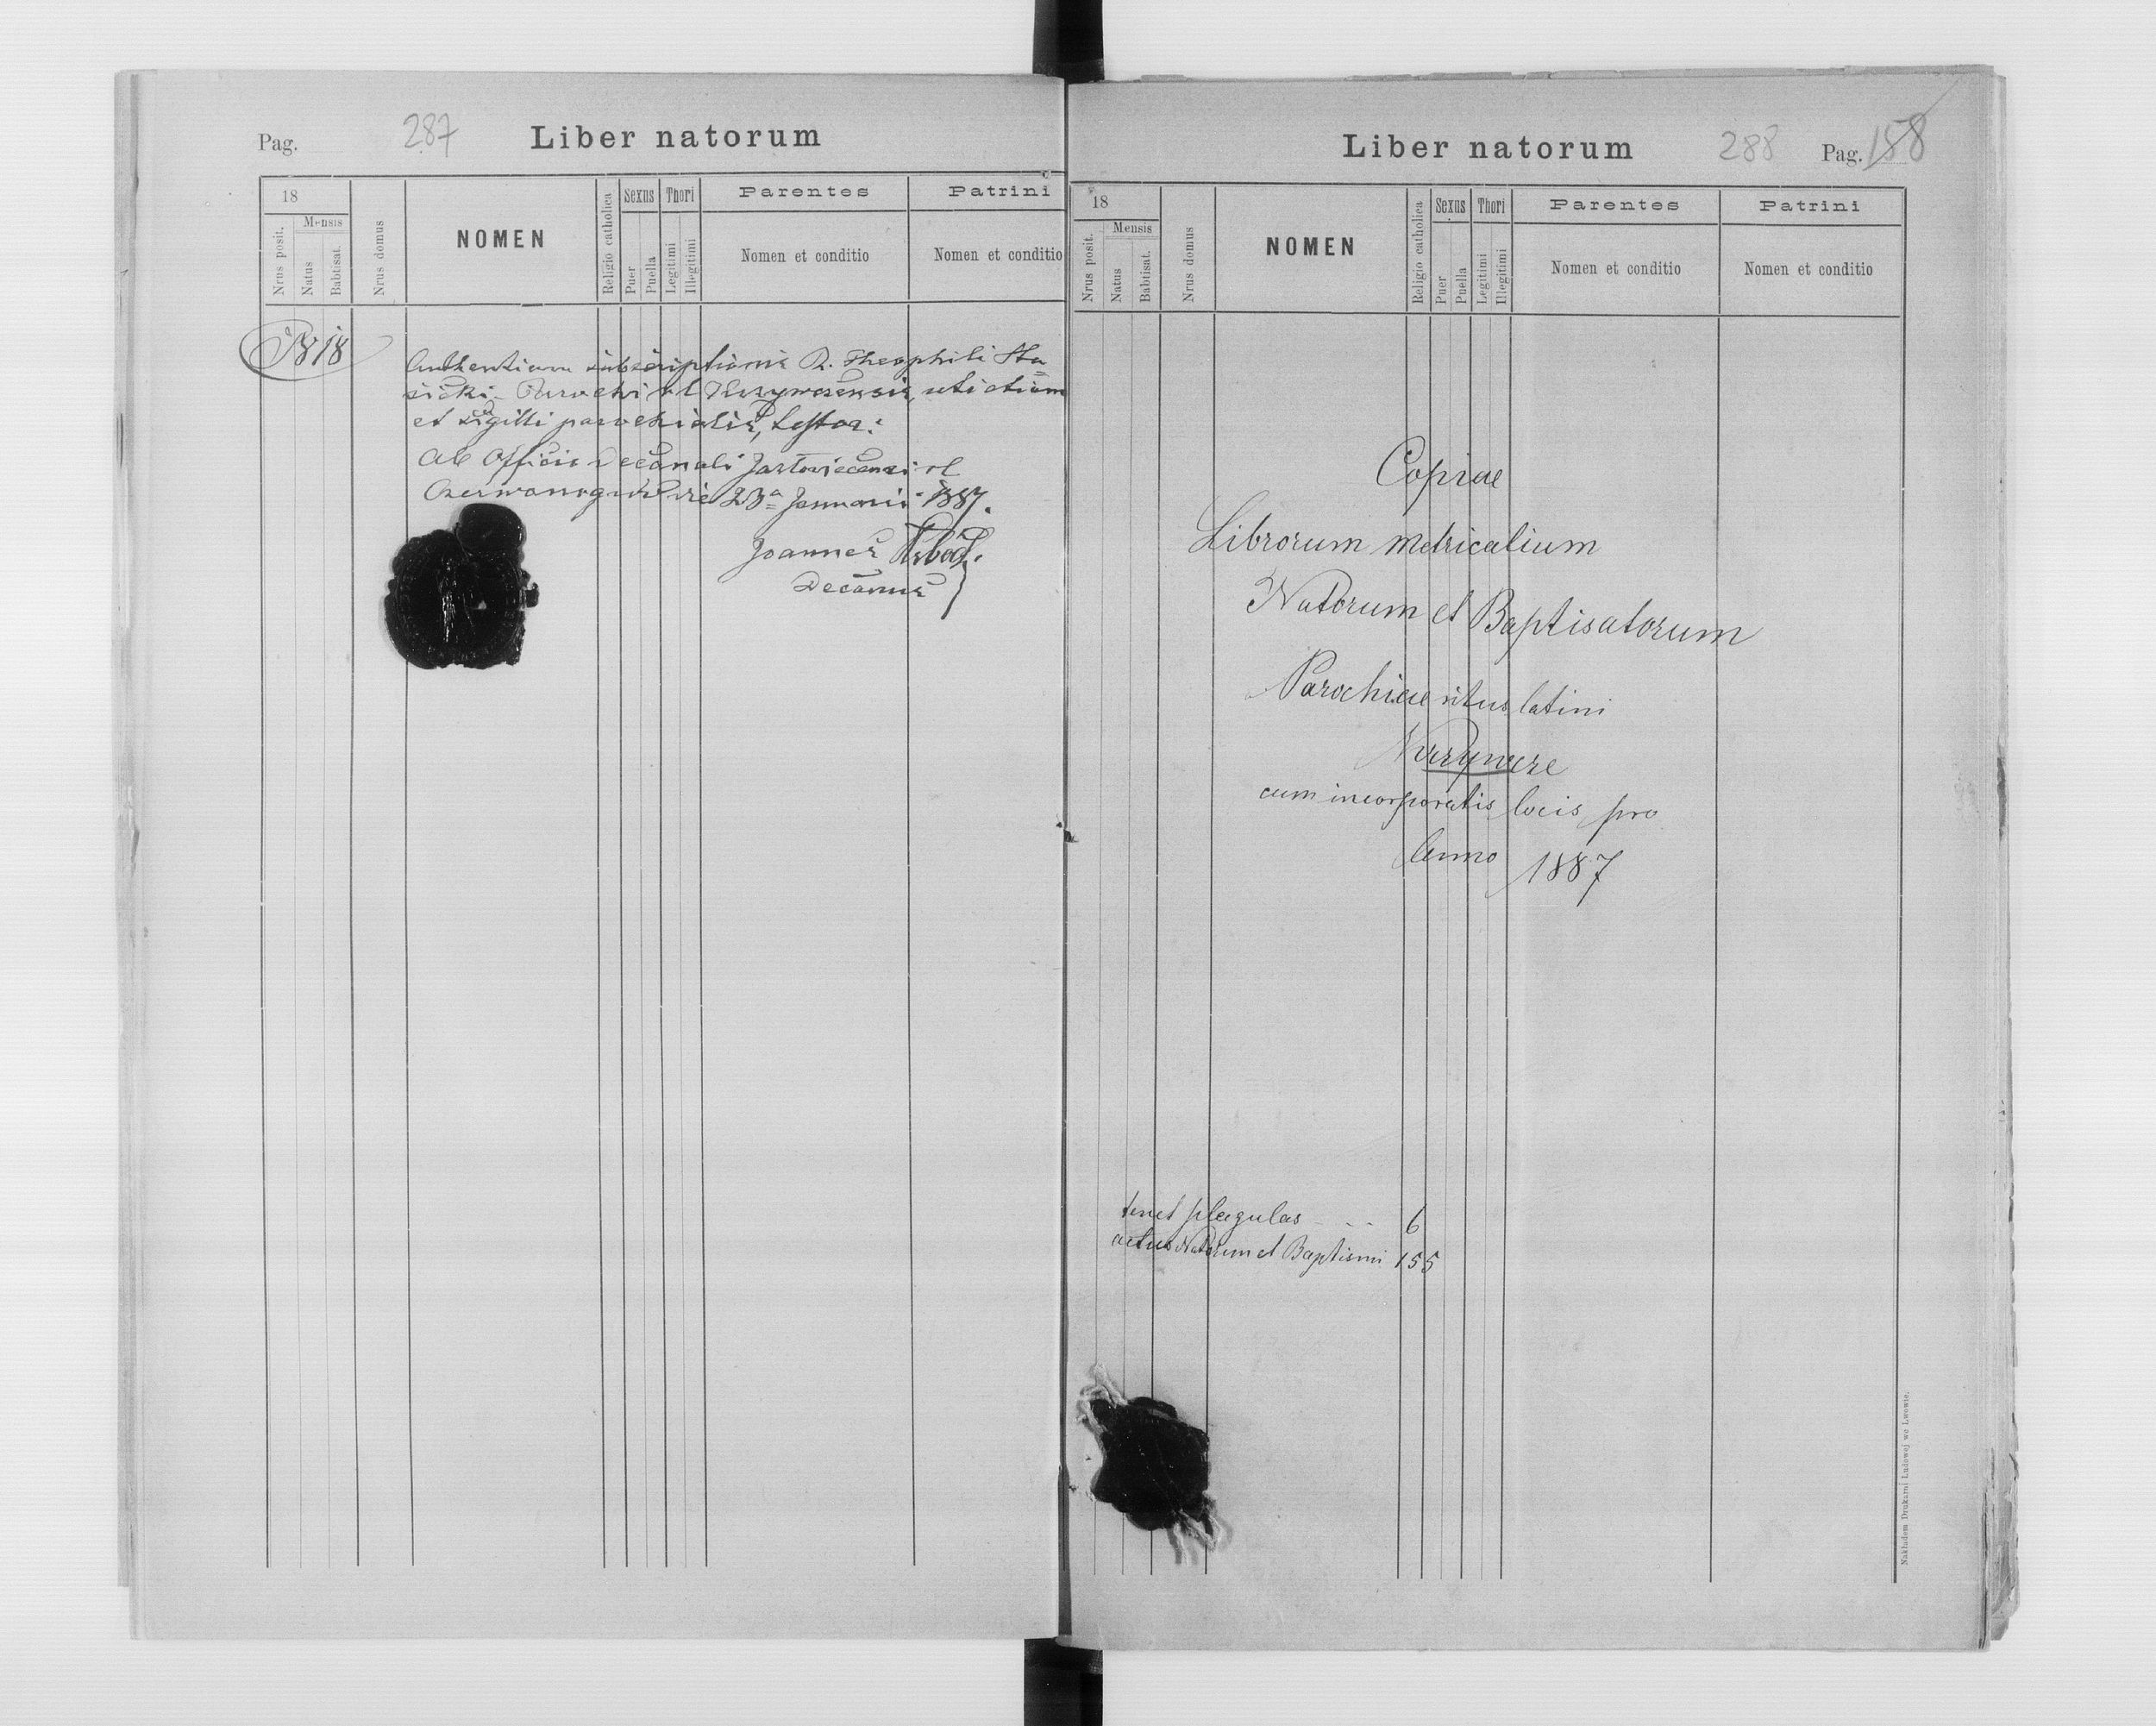 Pag.
287
Liber natorum
18
Mensis
Nrus posit.
Natus
Babtisat.
Nrus domus
NOMEN
Religio catholica
Sexus
Puer
Puella
Thori
Legitimi
Illegitimi
Parentes
Nomen et conditio
Patrini
Nomen et conditio
N 18
subscriptionis R. Theophili Sta=
sicki Parochi r l uti etiam
et sigilli parochialis, testor:
Ab Officio Decanali r l
die 23a Januarii 1887.
Joannes
Decanus
Liber natorum
288
Pag. 158
18
Mensis
Nrus posit.
Natus
Babtisat.
Nrus domus
NOMEN
Religio catholica
Sexus
Puer
Puella
Thori
Legitimi
Illegitimi
Parentes
Nomen et conditio
Patrini
Nomen et conditio
Copiae
Librorum metricalium
Natorum et Baptisatorum
Parochiae ritus latini
cum incorporatis locis pro
Anno 1887
tenet plagulas - - - 6
actus Natorum et Baptismi 155
Nakładem Drukarni Ludowej we Lwowie.